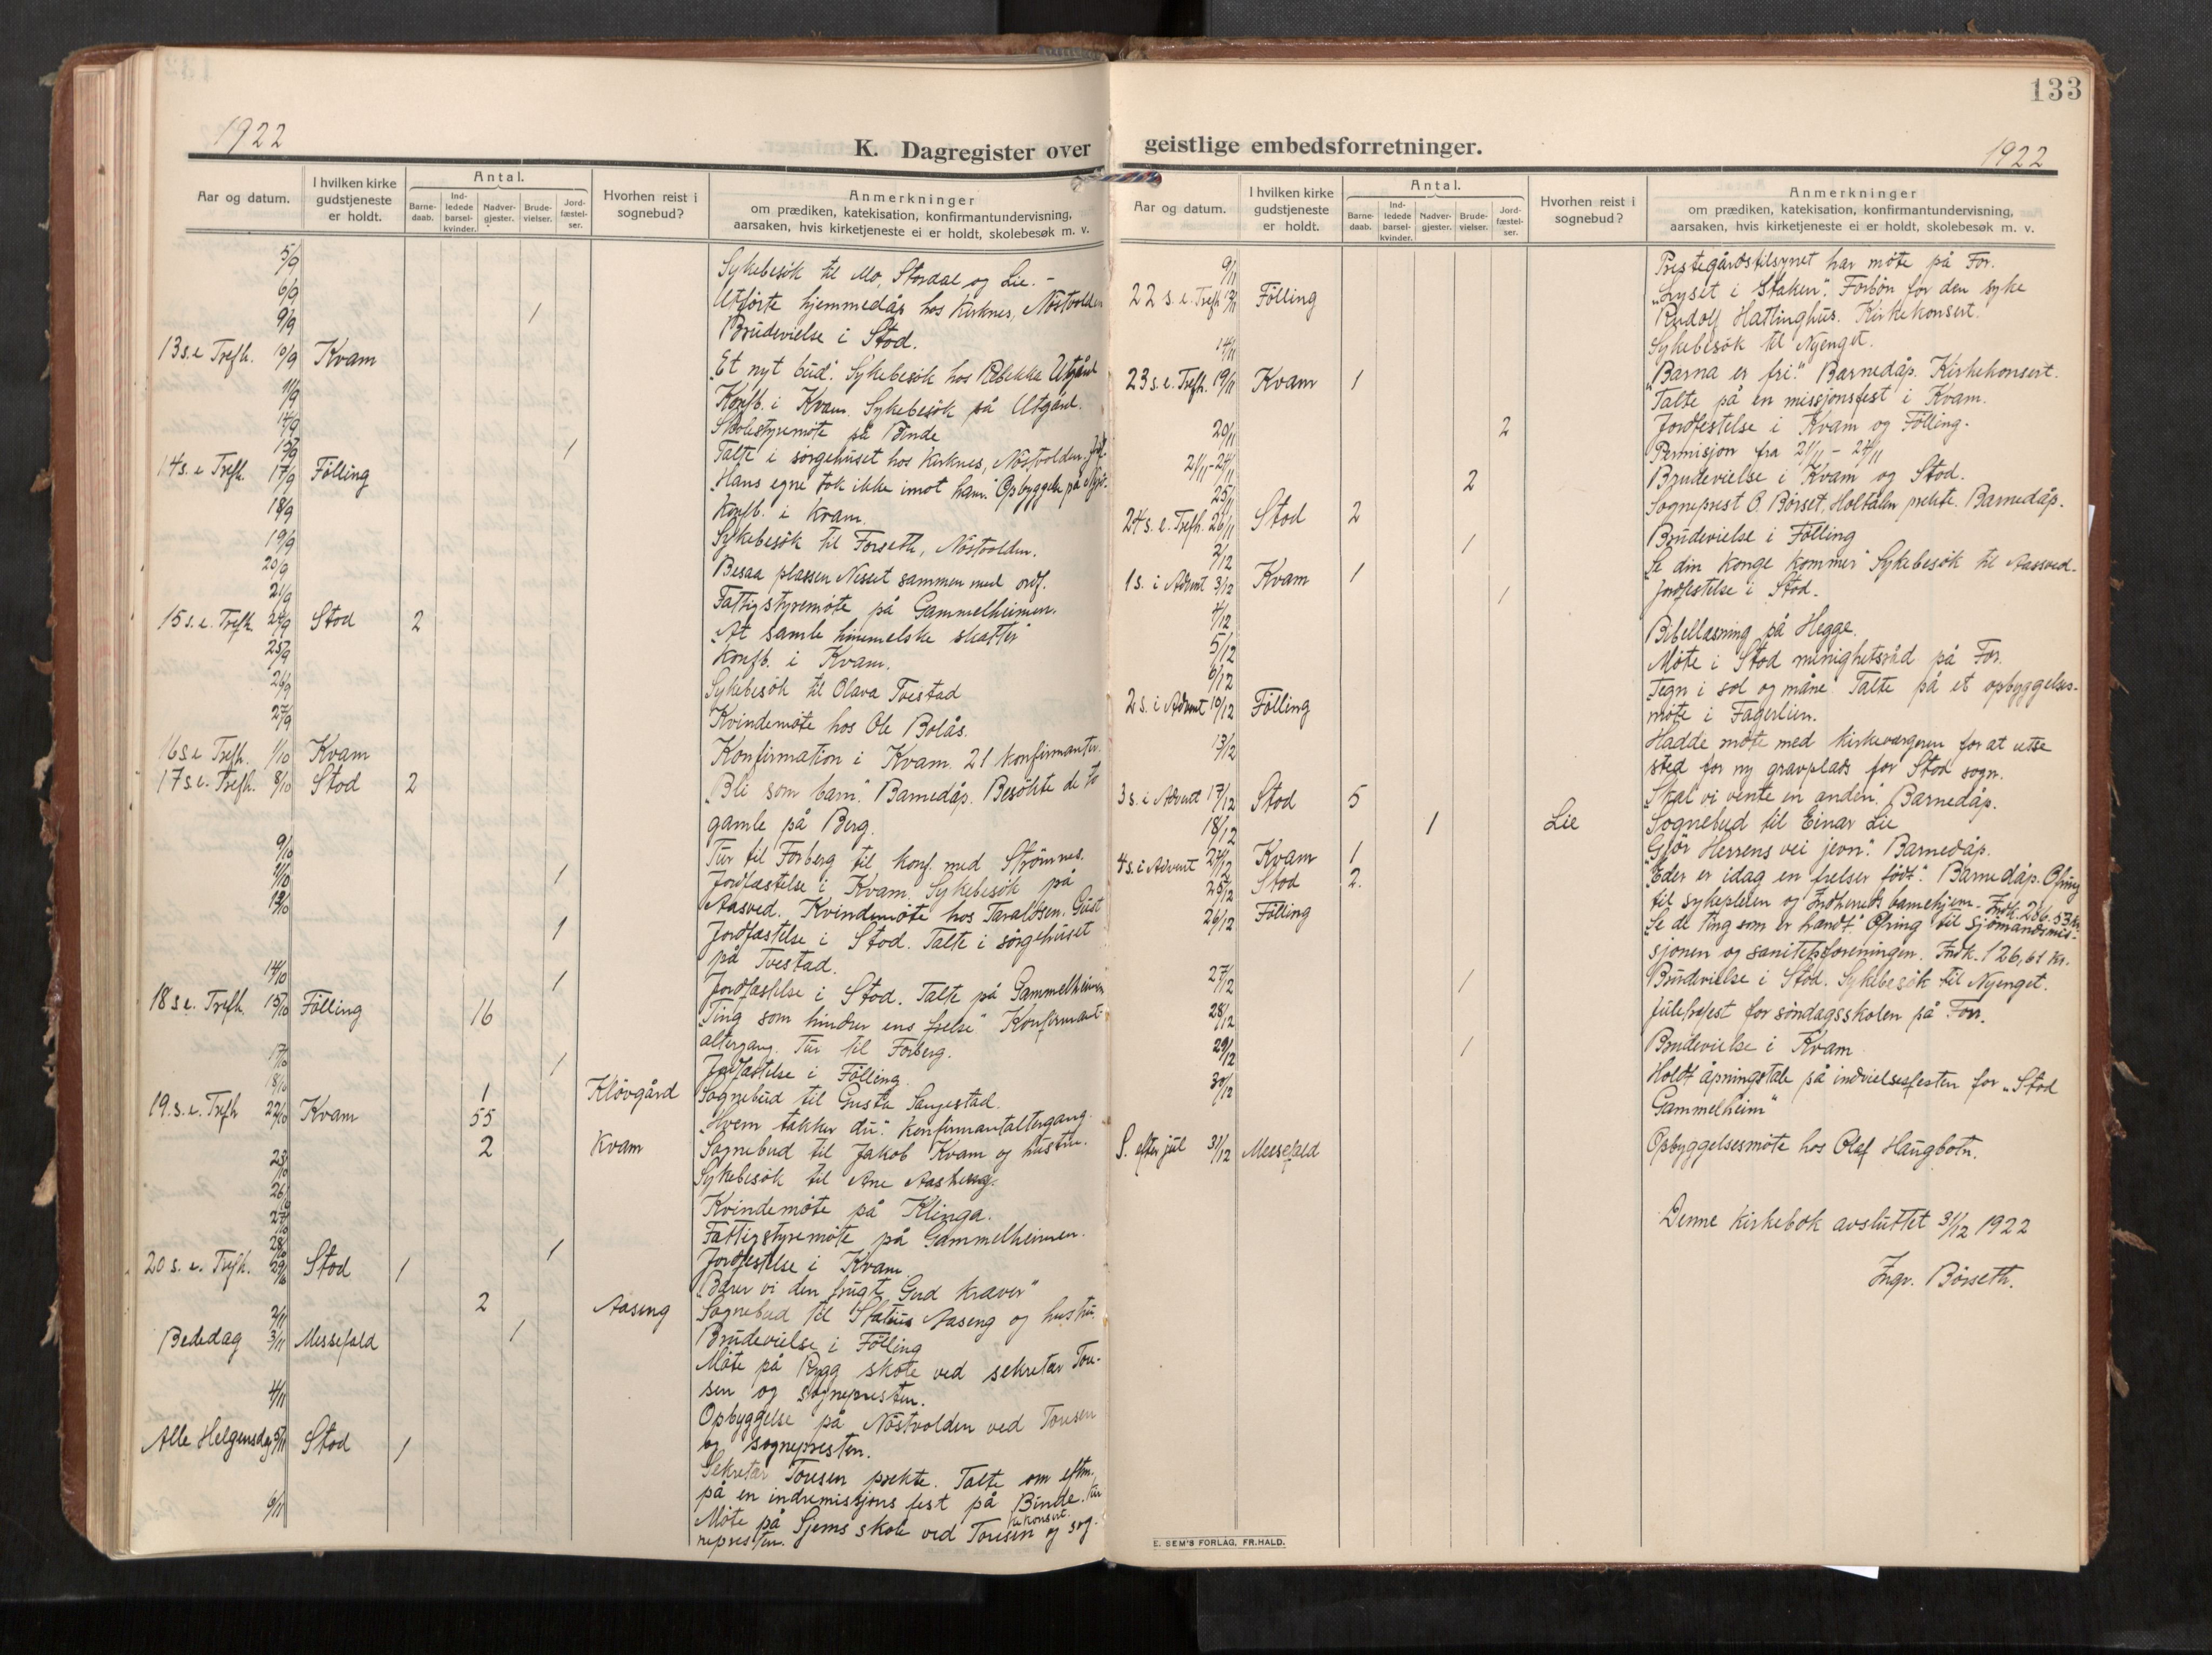 1922
K. Dagregister over
Aar og datum. I hvilken kirke gudstjeneste er holdt. Antal. Barnedaab. Indledede barselkvinder. Nadvergjester. Brudevielser. Jordfæstelser. Hvorhen reist i sognebud? Anmerkninger om prædiken, katekisation, konfirmantundervisning, aarsaken, hvis kirketjeneste ei er holdt, skolebesøk m. v.
5/9 Sykebesök til Mo, Stordal og Lie. -
6/9 Utførte hjemmedåp hos Kirknes, Nöstvolden
9/9 1 Brudevielse i Stod.
13 s.e Trefh. 10/9 Kvam "Et nyt bud". Sykebesök hos Rebekka Utgård
11/9 Konfb. i Kvam. Sykebesök på Utgård.
14/9 Skolestyremöte på Binde
1 Talte i sörgehuset hos Kirknes, Nöstvolden.
14 s. e Trefh. 17/9 Fölling "Hans egne tok ikke imot ham". Opbyggelse på
18/9 Konfb. i Kvam.
19/9 Sykebesök til Forseth, Nöstvolden.
20/9 Besaa plassen Nesset sammen med ordf.
21/9 Fattigstyremöte på Gammelheimen.
15 s. e. Trefh. 24/9 Stod 2 "At samle himmelske skatter"
25/9 Konfb. i Kvam.
26/9 Sykebesök til Olava Tvestad
27/9 Kvindemöte hos Ole Bolås.
16 s.e Trefh. 1/10 Kvam Konfirmation i Kvam. 21 konfirmanter.
17 s.e. Trefh. 8/10 Stod 2 "Bli som barn". Barnedåp. Besökte de to
gamle på Berg.
9/10 Tur til Forberg til konf. med Strömnes.
11/10 1 Jordfæstelse i Kvam. Sykebesök på
Aasved. Kvindemöte hos Taraldsen. Gust
1 Jordfæstelse i Stod. Talte i sörgehuset
på Tvestad.
14/10 1 Jordfæstelse i Stod. Talte på Gammelheimen
18 s.e. Trefh. 15/10 Fölling 16 "Ting som hindrer ens frelse" Konfirmant-
altergang. Tur til Forberg.
17/10 1 Jordfæstelse i Fölling.
18/10 1 Klövgård Sognebud til Gusta Saugestad.
19. s. e. Trefh 22/10 Kvam 55 "Hvem takker du". Konfirmantaltergang.
2 Kvam Sognebud til Jakob Kvam og hustru.
23/10 Sykebesök til Ane Aasheug.
26/10 Kvindemöte på Klinga.
27/10 Fattigstyremöte på Gammelheimen.
28/10 1 Jordfestelse i Kvam
20 s. e. Trefh. 29/10 Stod 1 "Bærer vi den frugt Gud kræver"
2 Aaseng Sognebud til Statius Aaseng og hustru.
2/11 1 Brudevielse i Fölling
Bededag 3/11 Messefald Möte på Rygg skole ved sekretær Tou-
sen og sognepresten.
4/11 Opbyggelse på Nöstvolden ved Tousen
og sognepresten.
Alle Helgensdag 5/11 Stod 1 Sekretær Tousen prekte. Talte om eftm.
på en indremissjons fest på Binde.
6/11 Möte på Gjems skole ved Tousen og sog-
nepresten.
133
geistlige embedsforretninger.
1922
Aar og datum. I hvilken kirke gudstjeneste er holdt. Antal. Barnedaab. Indledede barselkvinder. Nadvergjester. Brudevielser. Jordfæstelser. Hvorhen reist i sognebud? Anmerkninger om prædiken, katekisation, konfirmantundervisning, aarsaken, hvis kirketjeneste ei er holdt, skolebesøk m. v.
9/11 Prestegårdstilsynet har möte på For.
22 s. e. Trefh 12/11 Fölling "Lyset i Staken". Forbön for den syke
Rudolf Hatlinghus. Kirkekonsert.
14/11 Sykebesök til Nyenget.
23 s. e. Trefh. 19/11 Kvam 1 "Barna er fri." Barnedåp. Kirkekonsert.
Talte på en missjonsfest i Kvam.
20/11 2 Jordfestelse i Kvam og Fölling.
21/11-24/11 Permisjon fra 21/11 - 24/11
25/11 2 Brudevielse i Kvam og Stod.
24 s. e. Trefh. 26/11 Stod 2 Sogneprest O. Börset, Holtålen prekte. Barnedåp.
2/12 1 Brudevielse i Fölling
1 s. i Advent 3/12 Kvam 1 "Se din konge kommer" Sykebesök til Aassved.
4/12 1 Jordfestelse i Stod.
5/12 Bibellæsning på Hegge.
6/12 Möte i Stod menighetsråd på For.
2 s. i Advent 10/12 Fölling Tegn i sol og måne. Talte på et opbyggelses-
möte i Fagerlien.
13/12 Hadde möte med kirkevergeren for at utse
sted for ny gravplads for Stod sogn.
3 s. i Advent 17/12 Stod 5 "Skal vi vente en anden". Barnedåp.
18/12 1 Lie Sognebud til Einar Lie
4 s. i Advent 24/12 Kvam 1 "Gjör Herrens vei jevn". Barnedåp.
25/12 Stod 2. "Eder er idag en frelser född". Barnedåp. Ofring
til sykepleien og Indherreds barnehjem. Indk. 286.53 kr.
26/12 Fölling "Se de ting som er hændt." Ofring til Sjömandsmis-
sjonen og sanitetsforeningen. Indk. 126,61 kr.
27/12 1 Brudevielse i Stod. Sykebesök til Nyenget.
28/12 Juletrefest for söndagsskolen på For.
29/12 1 Brudevielse i Kvam
30/12 Holdt åpningstale på indvielsesfesten for "Stod
Gammelheim"
S. efter jul 31/12 Messefald Opbyggelsesmöte hos Olaf Haugbotn.
Denne kirkebok avsluttet 31/12 1922
Ingr. Börseth.
E. SEM'S FORLAG, FR.HALD.